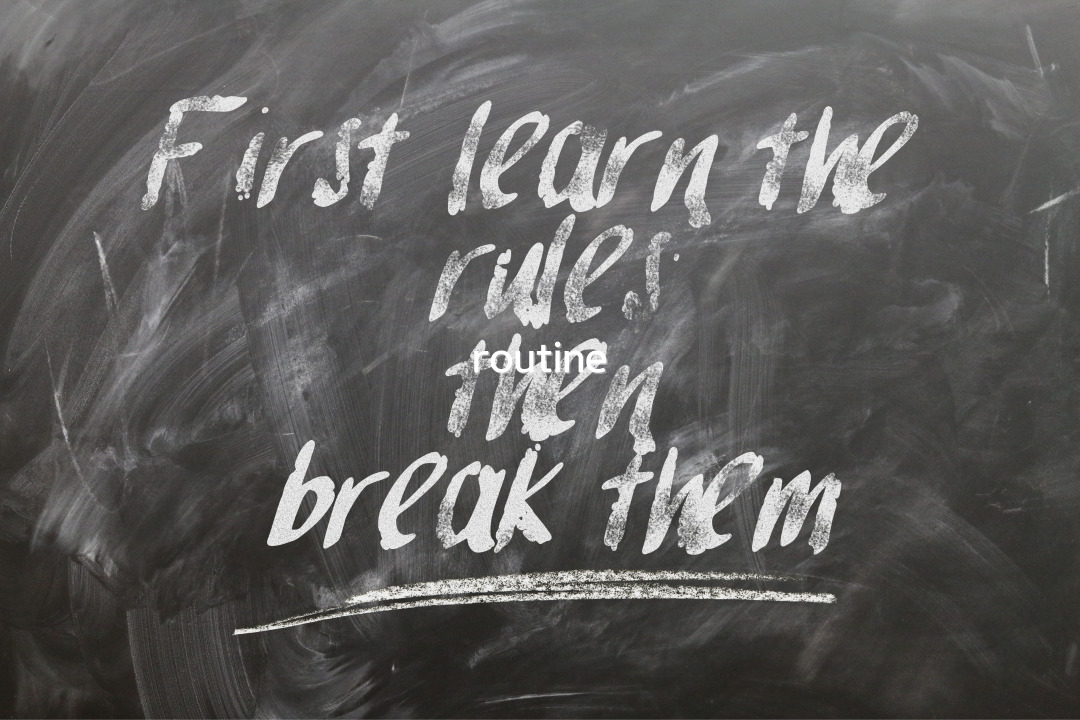 First learn the
rules
routine
then
break them